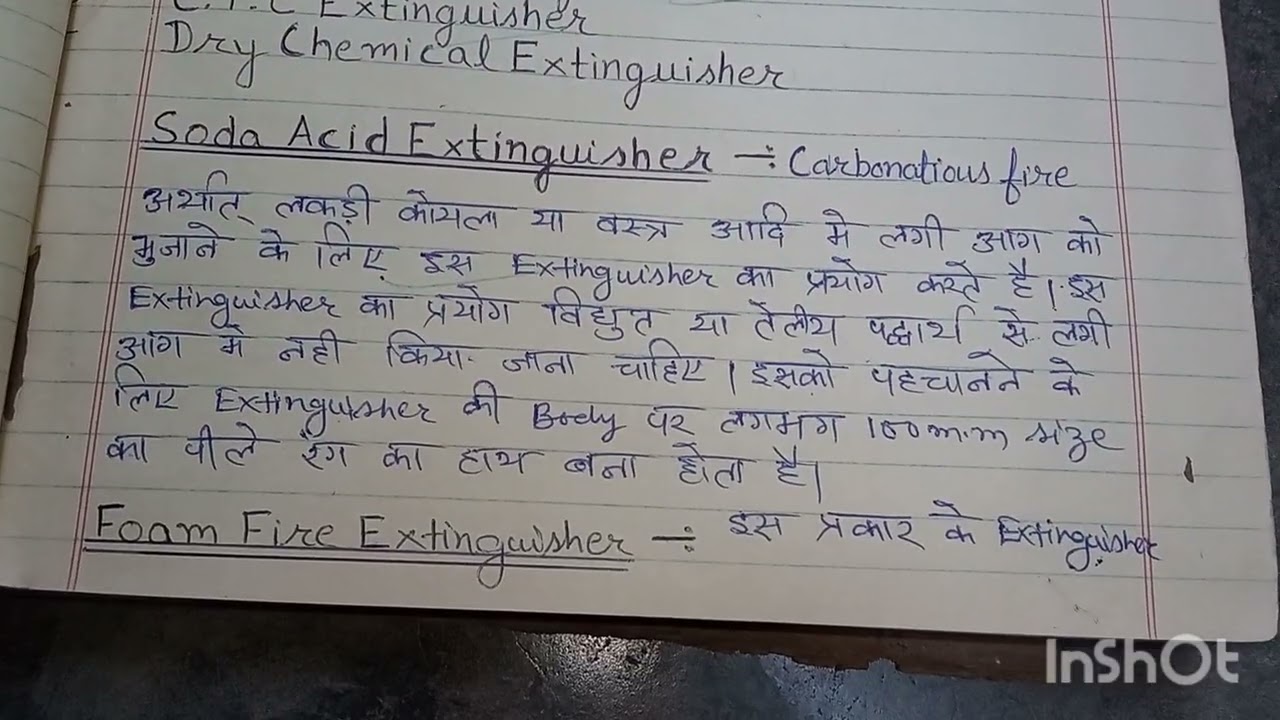 C.T.C Extinguisher
Dry Chemical Extinguisher
Soda Acid Extinguisher ÷ Carbonatious fire
अर्थात् लकड़ी कोयला या वस्त्र आदि मे लगी आग को
भुजाने के लिए इस Extinguisher का प्रयोग करते है। इस
Extinguisher का प्रयोग विद्युत या तेलीय पद्धार्थ से लगी
आग मे नही किया जाना चाहिए। इसको पहचानने के
लिए Extinguisher की Body पर लगभग 100m.m size
का पीले रंग का हाथ बना होता है।
Foam Fire Extinguisher ÷ इस प्रकार के Extinguisher
InShOt